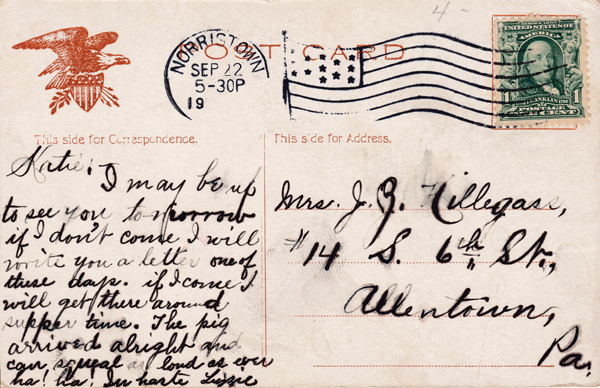 4-
POST CARD
NORRISTOWN
SEP 22
5-30P
19
SERIES 1902
UNITED STATES OF
AMERICA
1 FRANKLIN 1
POSTAGE
ONE CENT
This side for Correspondence.
This side for Address.
Katie:
I may be up
to see you tomorrow
if I don't come I will
write you a letter one of
these days. if I come I
will get there around
supper time. The pig
arrived alright and
can squeal as loud as ever
ha! ha! In haste Lizzie
Mrs. J. G. Hillegass,
#14 S. 6th St.,
Allentown,
Pa.